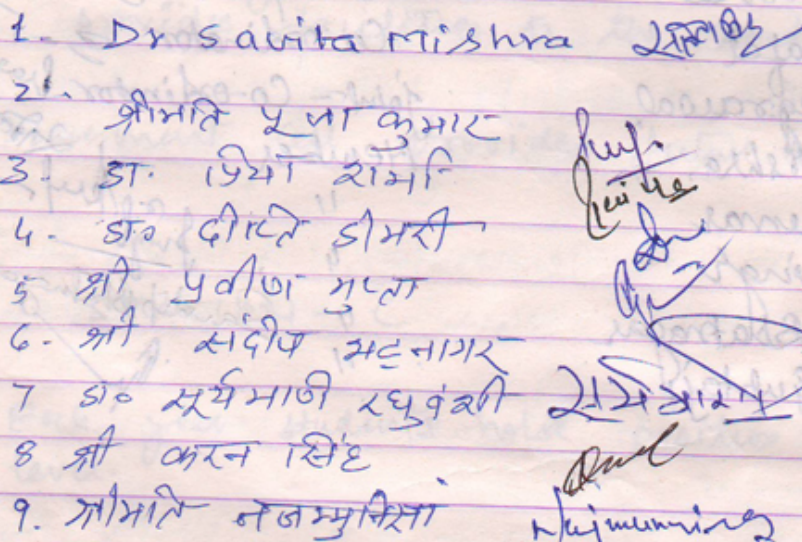 1. Dr Savita Mishra
2. श्रीमति पूजा कुमार
3. डा. प्रिया शर्मा
4. डा० दीप्ति डीमरी
5 श्री प्रवीण गुप्ता
6. श्री संदीप भटनागर
7 डा० सूर्यमाणी रघुवंशी
8 श्री करन सिंह
9. श्रीमति नजममुनिसा Najmunnisa